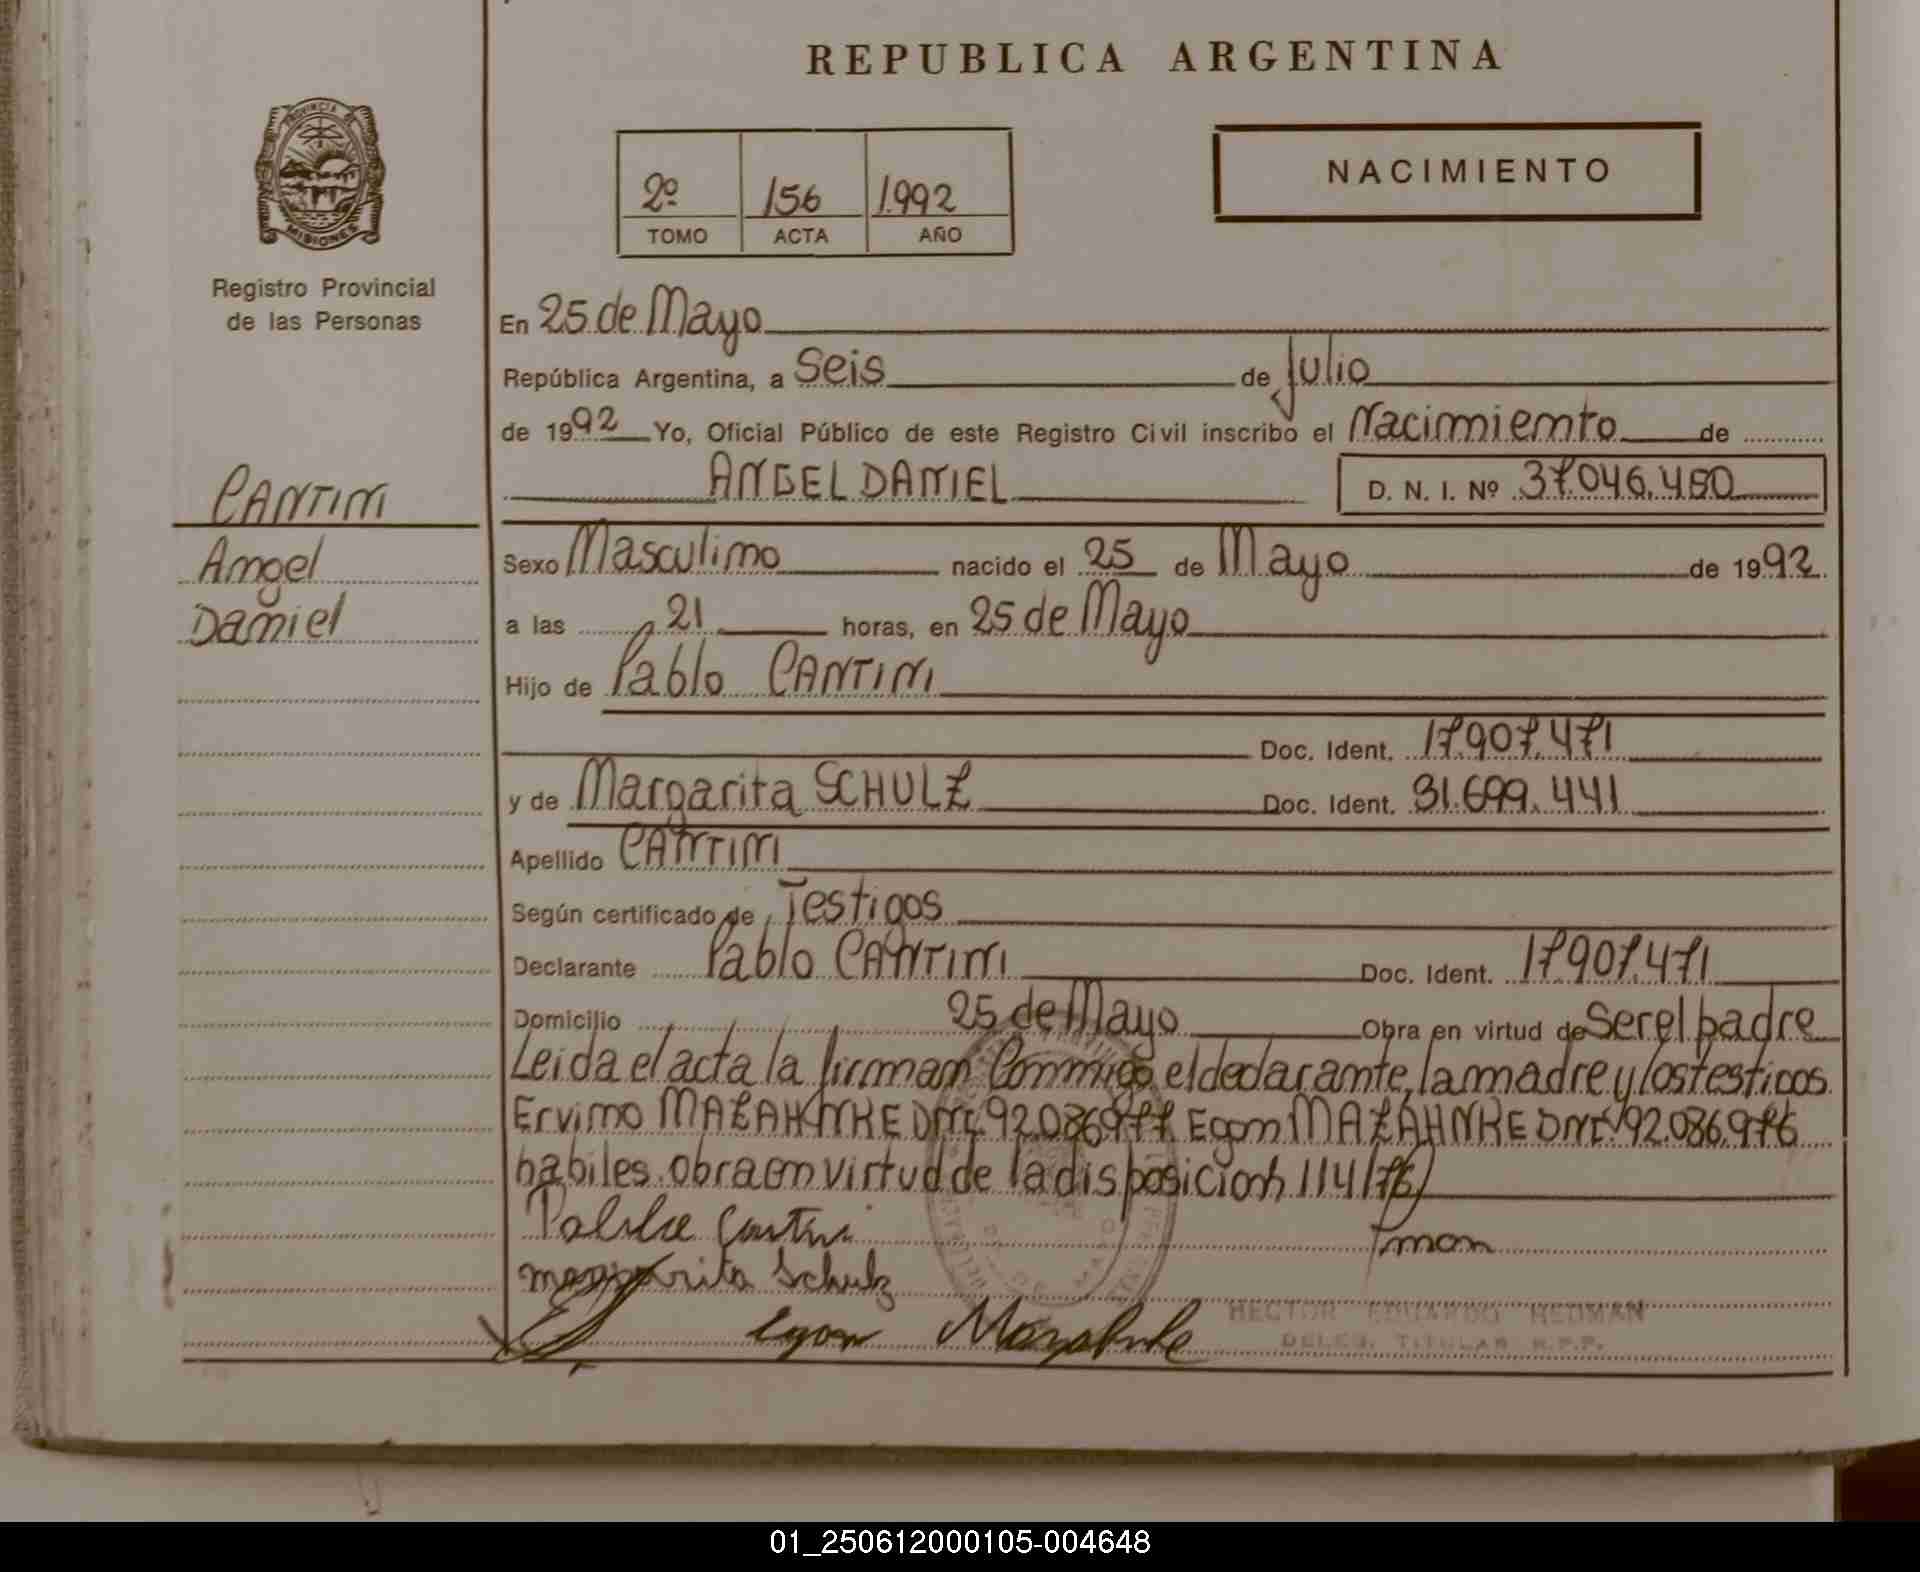 REPUBLICA ARGENTINA
PROVINCIA DE
MISIONES
Registro Provincial
de las Personas
2º 156 1.992
TOMO ACTA AÑO
NACIMIENTO
En 25 de Mayo
República Argentina, a Seis de Julio
de 1992 Yo, Oficial Público de este Registro Civil inscribo el Nacimiento de
ANGEL DANIEL D. N. I. Nº 37.046.480
CANTINI
Angel
Daniel
Sexo Masculino nacido el 25 de Mayo de 1992
a las 21 horas, en 25 de Mayo
Hijo de Pablo CANTINI
Doc. Ident. 17.907.471
y de Margarita SCHULZ Doc. Ident. 31.699.441
Apellido CANTINI
Según certificado de Testigos
Declarante Pablo CANTINI Doc. Ident. 17.907.471
Domicilio 25 de Mayo Obra en virtud de Ser el padre
Leida el acta la firman Conmigo el declarante, la madre y los testigos
Ervino MAZAHNKE DNI. 92.086977 Egon MAZAHNKE DNI. 92.086.976
habiles. obra en virtud de la disposicion 114/76
Cantini
margarita Schulz
egon
HECTOR EDUARDO HEDMAN
DELEG. TITULAR R.P.P.
01_250612000105-004648